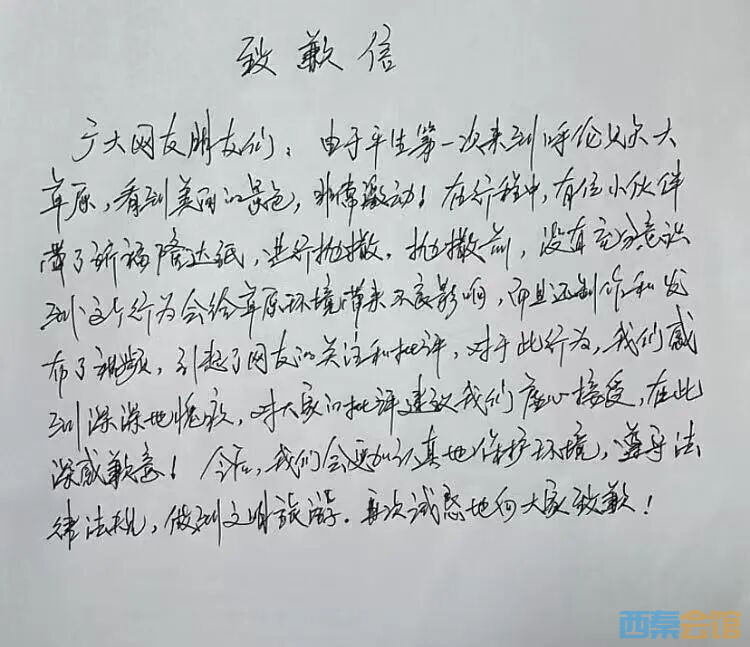 致歉信
广大网友朋友们：由于平生第一次来到呼伦贝尔大
草原，看到美丽的景色，非常激动！在行程中，有位小伙伴
带了祈福隆达纸，进行抛撒，抛撒前，没有充分意识
到这个行为会给草原环境带来不良影响，而且还制作和发
布了视频，引起了网友的关注和批评，对于此行为，我们感
到深深地愧疚，对大家的批评建议我们虚心接受，在此
深感歉意！今后，我们会更加认真地保护环境，遵守法
律法规，做到文明旅游。再次诚恳地向大家致歉！
西秦会馆